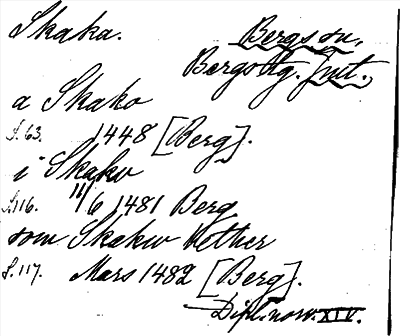 Skaka.
Bergs sn,
Bergs tg. Jmt.,
a Skako
S. 63. 1448 [Berg].
i Skakv
S. 116. 11/6 1481 Berg
som Skakw
S. 117. Mars 1482 [Berg].
Dipl. norv. XIV.